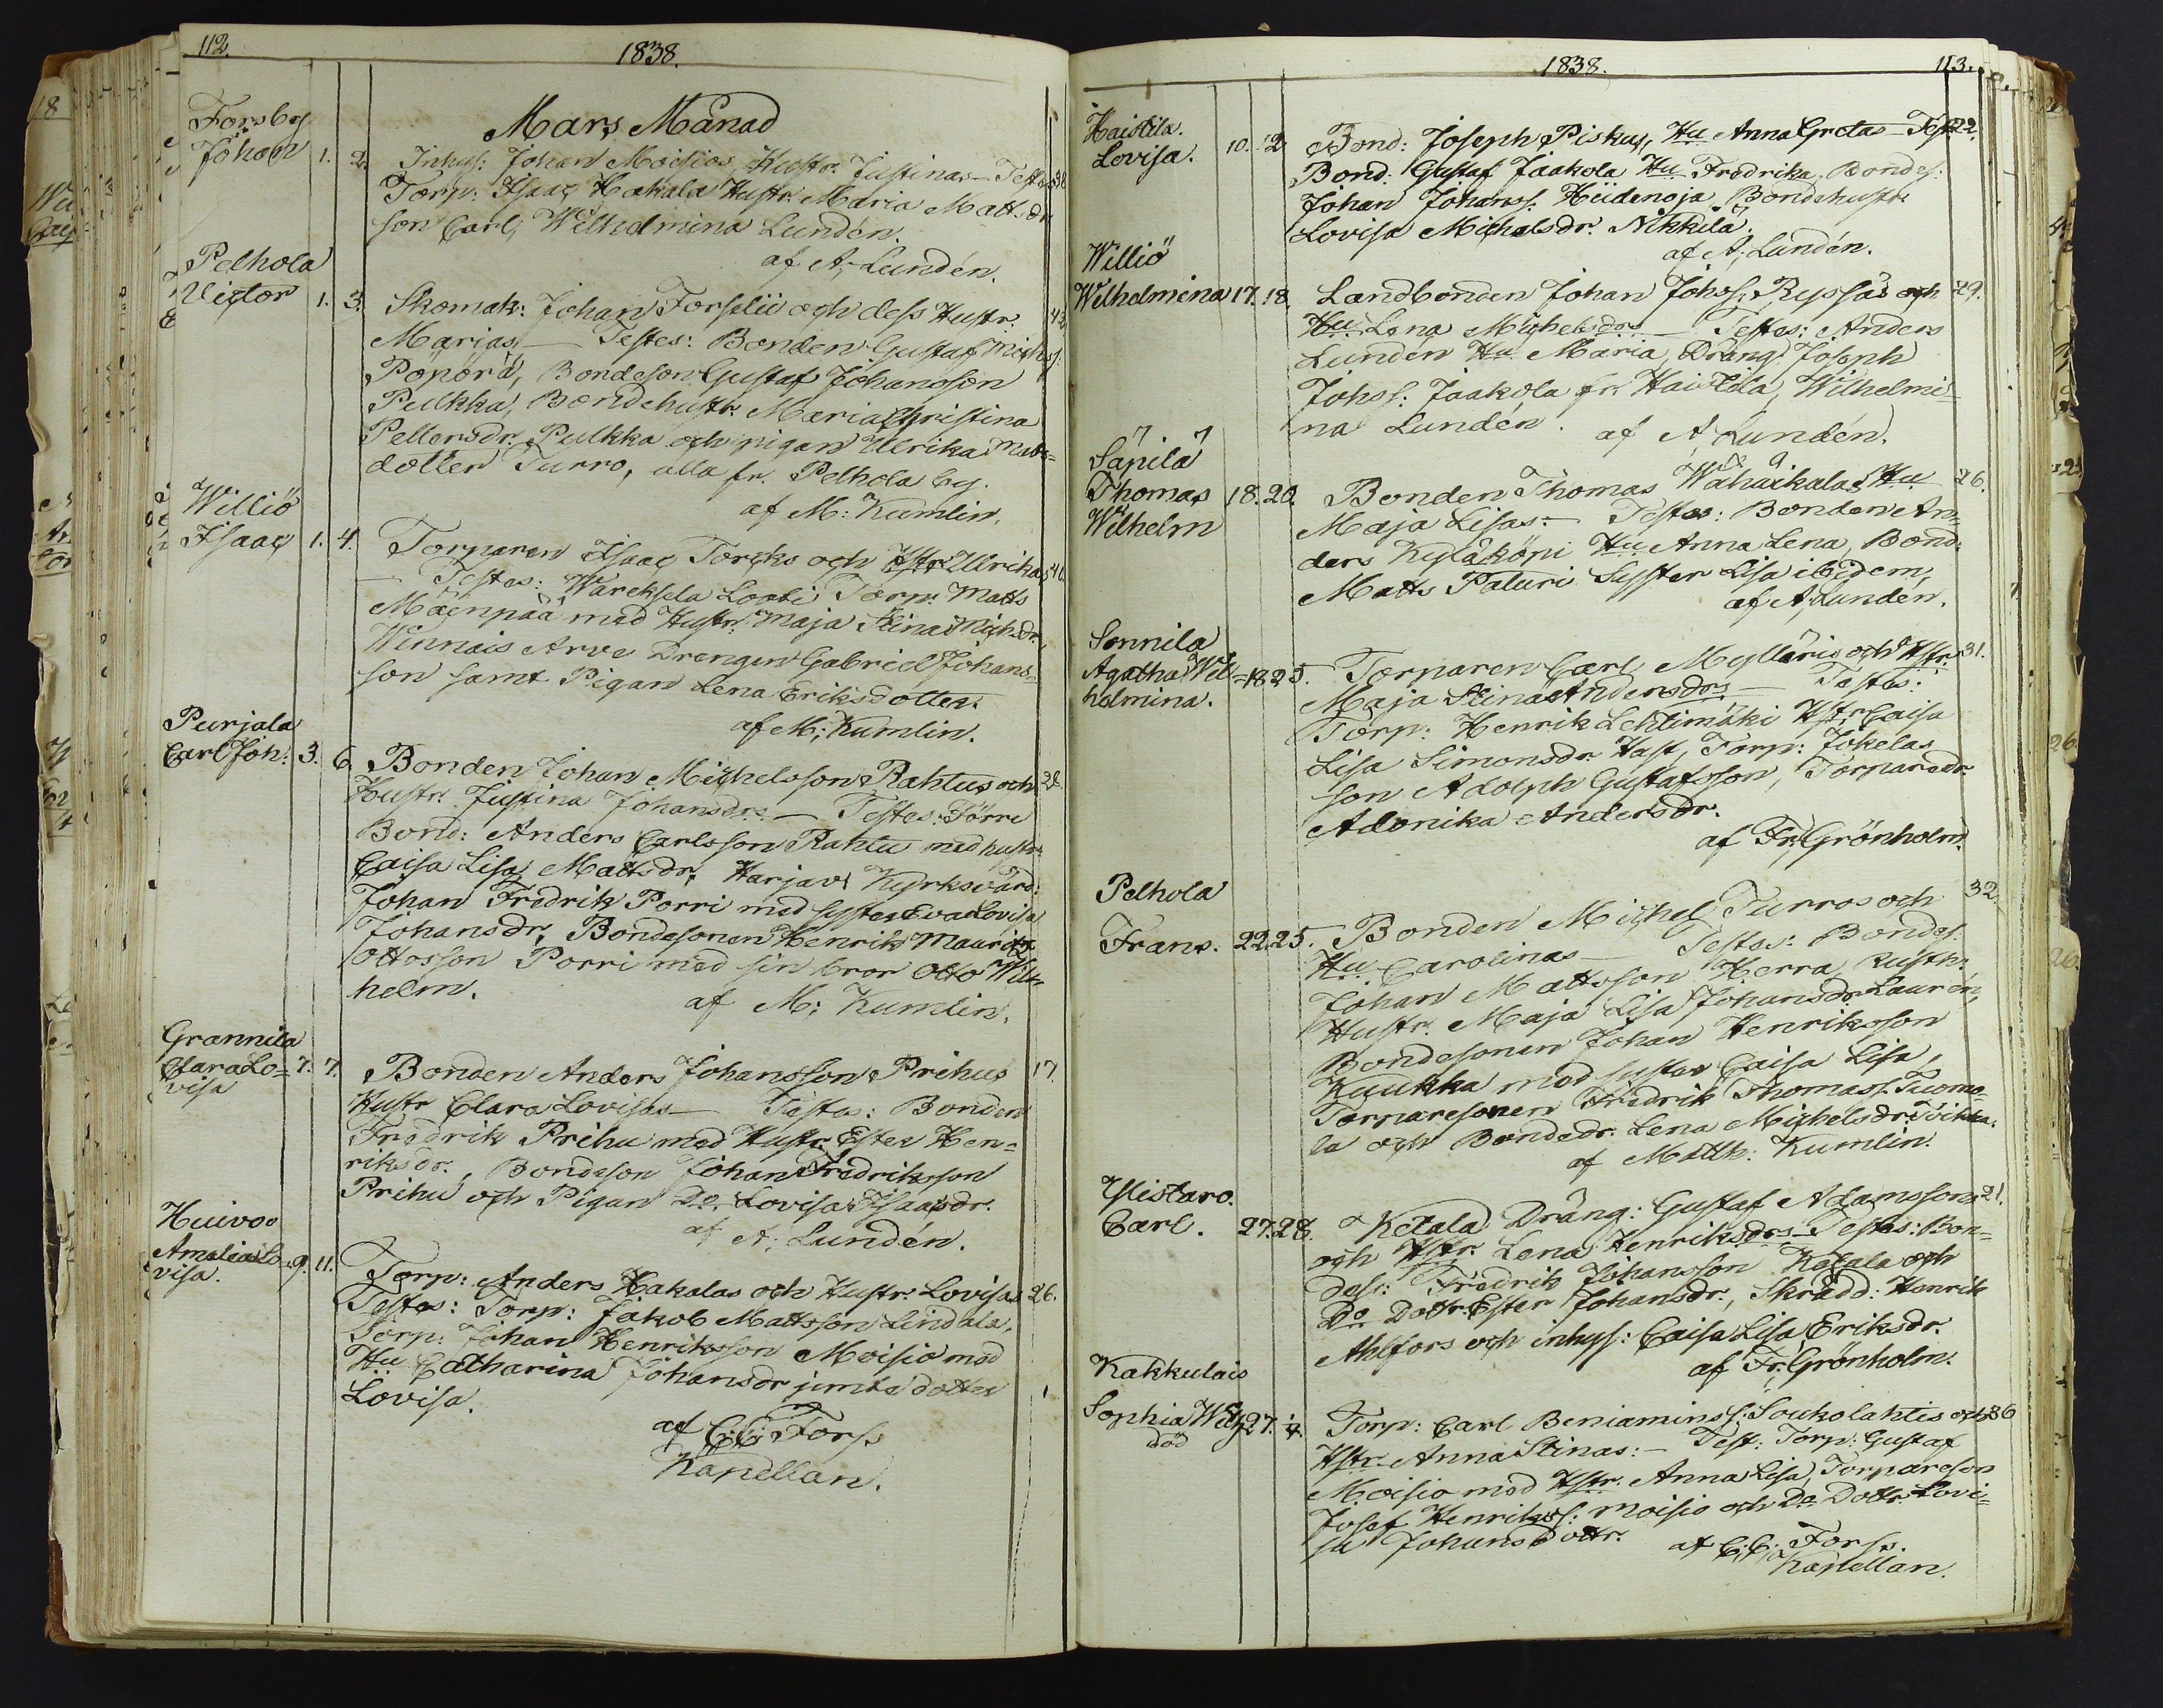 112.
1838.
Mars Månad
Forsby
Johan 1. 2. Inhys: Johan Moisios Hustr. Justinas - Test. 38
Torp: Isaac Hakala Hustr. Maria Matts dr
son Carl, Wilhelmina Lundén.
af A: Lundén.
Pelhola
Victor 1. 3. Skomak: Johan Forselii och dess Hustr. 42
Marias, - Testes: Bonden Gustaf Michss:
Pöpörä, Bondeson Gustaf Johansson
Pulkka, Bondehustr. Maria Christina
Pettersdr. Pulkka och pigan Ulrika Matts=
dotter Turro, alla fr. Pelhola by.
af M: Kumlin.
Williö
Isaac 1. 4. Torparen Isaac Torcks och Hstr Ulrikas 40.
- Testes: Warcksla Looti Torp. Matts
Mäenpää med Hustr. Maja Stina Michsdr.,
Winnais Arve Drengen Gabriel Johans=
son samt Pigan Lena Eriksdotter.
af M: Kumlin.
Purjala
Carl Joh: 3. 6. Bonden Johan Michelsson Rahtus och 28.
Hustr. Justina Johansdrs. - Testes: Förre
Bond: Anders Carlsson Rahtu med hustr.
Caisa Lisa Mattsdr, Harjav. Kyrkovärd:
Johan Fredrik Porri med syster Eva Lovisa
Johansdr, Bondesonen Henrik Mauritz
Ottosson Porri med sin bror Otto Wil=
helm.
af M: Kumlin.
Grannila
Clara Lo= 7. 7. Bonden Anders Johansson Prihus 17.
visa
Hustr Clara Lovisas - Testes: Bonden
Fredrik Prihu med Hustr. Ester Hen=
riksdr., Bondeson Johan Fredriksson
Prihu och Pigan Do. Lovisa Isaacsdr.
af A: Lundén.
Huivoo
Amalia Lo= 9. 11. Torp: Anders Hakalas och Hustr: Lovisas 26.
visa.
Testes: Torp: Jakob Mattsson Lindala,
Torp: Johan Henriksson Moisio med
Hu Catharina Johansdr jemte dotter
Lovisa.
af C: C: Forss
Kapellan.
1838.
113.
Haistila.
Lovisa. 10. 12. Bond: Joseph Piskus, Hu Anna Gretas - Test. 22.
Bond: Gustaf Jaakola Hu Fredrika, Bondes:
Johan Johanss. Hiidenoja, Bondehustr.
Lovisa Michelsdr. Nikkilä.
af A: Lundén.
Williö
Wilhelmina 17. 18. Landbonden Johan Johss: Ryssäs och 29.
Hu Lena Michelsdrs - Testes: Anders
Lundén Hu Maria, Dräng: Joseph
Johss: Jaakola fr. Haistila, Wilhelmi=
na Lundén.
af A: Lundén.
Säpilä
Thomas 18. 20. Bonden Thomas Wähäikalas Hu 26.
Wilhelm
Maja Lisas: - Testes: Bonden An=
ders Kyläköpi Hu Anna Lena, Bond:
Matts Paturi Syster Lisa ibidem,
af A: Lundén.
Sonnila
Agatha Wil= 18 25. Torparen Carl Mylläris och Hstr. 31.
helmina.
Maja Stina Andersdrs - Testes:
Torp: Henrik Lehtimäki Hstr. Caisa
Lisa Simonsdr. Hast, Torp: Jokelas
son Adolph Gustafsson, Torparedr.
Adonika Andersdr.
af Fr: Grönholm.
Pelhola
Frans. 22. 25. Bonden Michel Turros och 32.
Hu Carolinas - Testes: Bondes.
Johan Mattsson Herra, Rusth:
Hustr. Maja Lisa Johansdr Laurén,
Bondesonen Johan Henriksson
Kaukka med syster Caisa Lisa,
Torparesonen Fredrik Thomass. Tuomo=
la och Bondedr. Lena Michelsdr. Toikka.
af Matth: Kumlin.
Ylistaro.
Carl. 27. 28. Ketala Dräng: Gustaf Adamssons 21.
och Hstr. Lena Henriksdrs - Testes: Bon=
des: Fredrik Johansson Ketala och
Do Dottr. Ester Johansdr., Skrädd: Henrik
Ahlfors och inhys: Caisa Lisa Eriksdr.
af Fr: Grönholm.
Kakkulais
Sophia Wilh 27. Torp: Carl Beniaminss: Soukolahtis och 36
död
Hstr. Anna Stinas: - Test: Torp: Gustaf
Moisio med Hstr. Anna Lisa, Torpareson
Josef Henrikss: Moisio och Do Dottr. Lovi=
sa Johansdottr.
af C: C: Forss.
Kapellan.